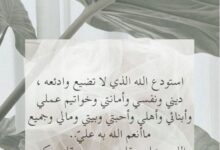 استودع الله الذي لا تضيع ودائعه ،
ديني ونفسي وأمانتي وخواتيم عملي
وأبنائي وأهلي وأحبتي وبيتي ومالي وجميع
ماأنعم الله به عليّ..